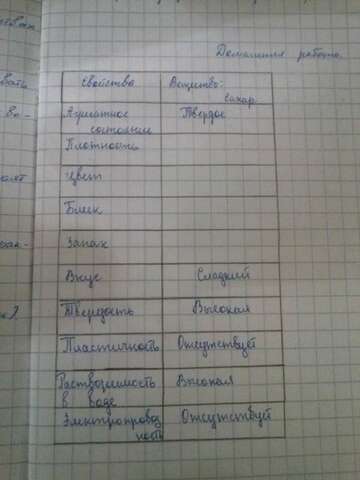 Домашняя работа.
Свойство Вещество-
сахар
Агрегатное Твердое
состояние
Плотность
Цвет
Блеск
Запах
Вкус Сладкий
Твердость Высокая
Пластичность Отсутствует
Растворимость Высокая
в воде
Электропровод Отсутствует
ность